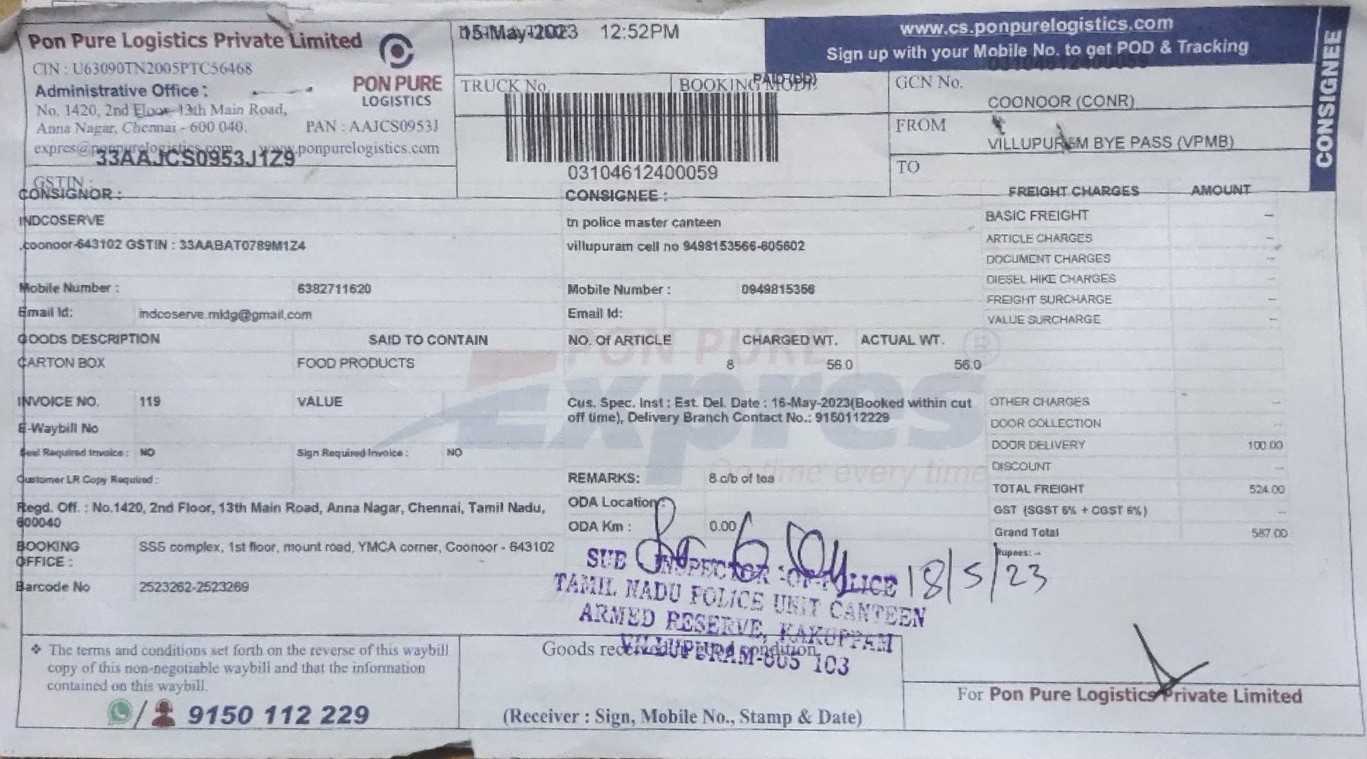 Pon Pure Logistics Private Limited
CIN : U63090TN2005PTC56468
Administrative Office :
No. 1420, 2nd Floor, 13th Main Road,
Anna Nagar, Chennai - 600 040.
PAN : AAJCS0953J
expres@ponpurelogistics.com www.ponpurelogistics.com
33AAJCS0953J1Z9
GSTIN :
PON PURE
LOGISTICS
15-May-2023 12:52PM
TRUCK No.
BOOKING MODE
PAID (DD)
03104612400059
www.cs.ponpurelogistics.com
Sign up with your Mobile No. to get POD & Tracking
GCN No.
03104612400059
COONOOR (CONR)
FROM
VILLUPURAM BYE PASS (VPMB)
TO
CONSIGNEE
CONSIGNOR :
INDCOSERVE
,coonoor-643102 GSTIN : 33AABAT0789M1Z4
Mobile Number : 6382711620
Email Id: indcoserve.mktg@gmail.com
CONSIGNEE :
tn police master canteen
villupuram cell no 9498153566-605602
Mobile Number : 0949815356
Email Id:
GOODS DESCRIPTION SAID TO CONTAIN NO. Of ARTICLE CHARGED WT. ACTUAL WT.
CARTON BOX FOOD PRODUCTS 8 56.0 56.0
INVOICE NO. 119 VALUE
E-Waybill No
Seal Required Invoice : NO Sign Required Invoice : NO
Customer LR Copy Required :
Cus. Spec. Inst : Est. Del. Date : 16-May-2023(Booked within cut
off time), Delivery Branch Contact No.: 9150112229
REMARKS: 8 c/b of tea
ODA Location:
ODA Km : 0.00
Regd. Off. : No.1420, 2nd Floor, 13th Main Road, Anna Nagar, Chennai, Tamil Nadu,
600040
BOOKING
OFFICE :
SSS complex, 1st floor, mount road, YMCA corner, Coonoor - 643102
Barcode No 2523262-2523269
FREIGHT CHARGES AMOUNT
BASIC FREIGHT --
ARTICLE CHARGES --
DOCUMENT CHARGES --
DIESEL HIKE CHARGES --
FREIGHT SURCHARGE --
VALUE SURCHARGE --
OTHER CHARGES --
DOOR COLLECTION --
DOOR DELIVERY 100.00
DISCOUNT --
TOTAL FREIGHT 524.00
GST (SGST 6% + CGST 6%) --
Grand Total 587.00
Rupees: --
PON PURE
Expres
On time every time
SUB INSPECTOR OF POLICE
TAMIL NADU POLICE UNIT CANTEEN
ARMED RESERVE, KAKUPPAM
VILLUPURAM-605 103
18/5/23
❖ The terms and conditions set forth on the reverse of this waybill
copy of this non-negotiable waybill and that the information
contained on this waybill.
9150 112 229
Goods received condition
(Receiver : Sign, Mobile No., Stamp & Date)
For Pon Pure Logistics Private Limited